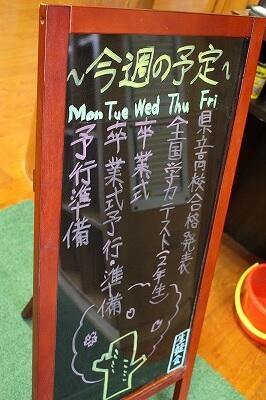 ～今週の予定～
Mon Tue Wed Thu Fri
予行準備
卒業式予行・準備
卒業式
全国学力テスト(2年生)
県立高校合格発表
生徒会